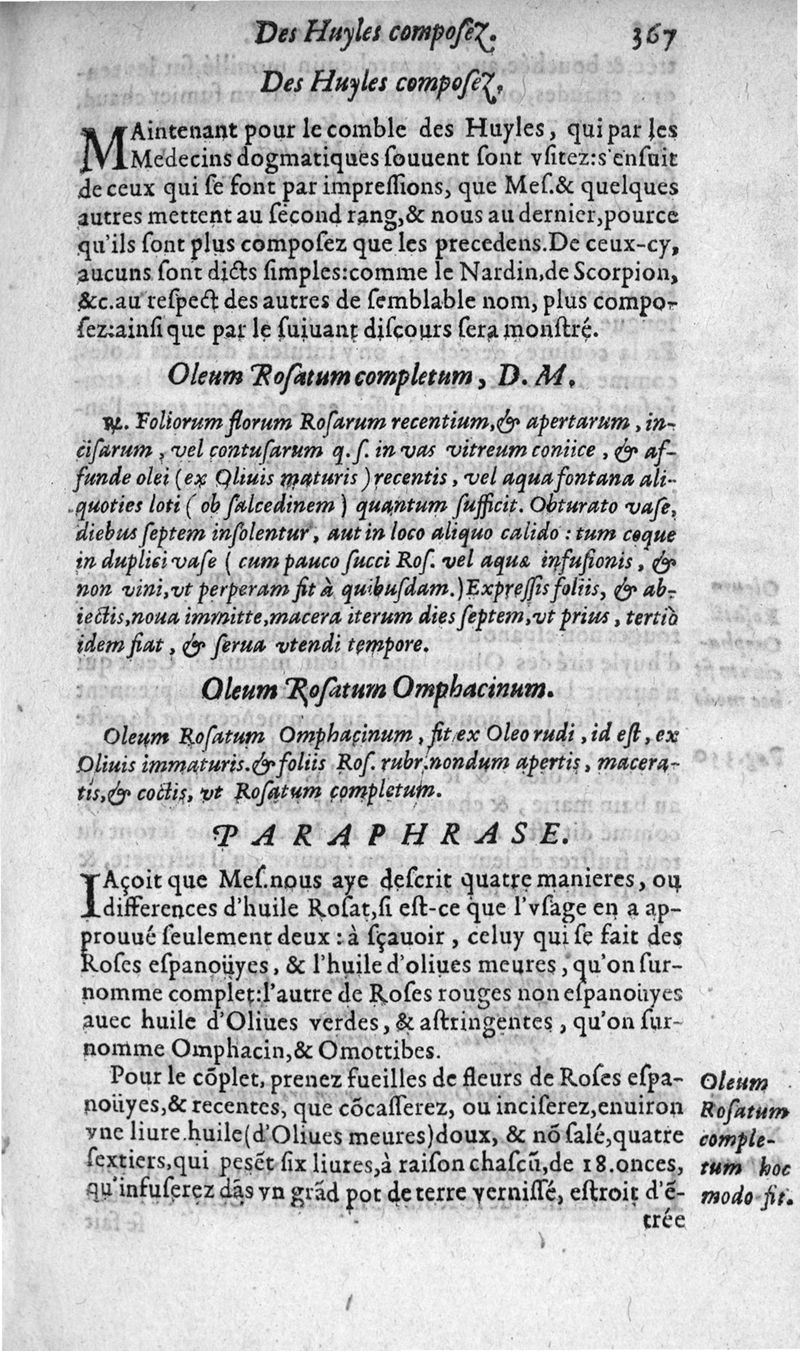 Des Huyles composez. 367
Des Huyles composez.
MAintenant pour le comble des Huyles, qui par les
Medecins dogmatiques souuent sont vsitez:s'ensuit
de ceux qui se font par impressions, que Mes.& quelques
autres mettent au second rang,& nous au dernier,pource
qu'ils sont plus composez que les precedens.De ceux-cy,
aucuns sont dicts simples:comme le Nardin,de Scorpion,
&c.au respect des autres de semblable nom, plus compo-
sez:ainsi que par le suiuant discours sera monstré.
Oleum Rosatum completum, D. M.
℞. Foliorum florum Rosarum recentium,& apertarum, in-
cisarum, vel contusarum q. s. in vas vitreum coniice, & af-
funde olei (ex Oliuis maturis) recentis, vel aqua fontana ali-
quoties loti ( ob salcedinem ) quantum sufficit. Obturato vase,
diebus septem insolentur, aut in loco aliquo calido : tum coque
in duplici vase ( cum pauco succi Ros. vel aquæ infusionis, &
non vini,vt perperam fit à quibusdam.)Expressis foliis, & ab-
iectis,noua immitte,macera iterum dies septem,vt prius, tertiò
idem fiat, & serua vtendi tempore.
Oleum Rosatum Omphacinum.
Oleum Rosatum Omphacinum, fit ex Oleo rudi, id est, ex
Oliuis immaturis.& foliis Ros. rubr.nondum apertis, macera-
tis,& coctis, vt Rosatum completum.
PARAPHRASE.
IAçoit que Mes.nous aye descrit quatre manieres, ou
differences d'huile Rosat,si est-ce que l'vsage en a ap-
prouué seulement deux : à sçauoir, celuy qui se fait des
Roses espanoüyes, & l'huile d'oliues meures, qu'on sur-
nomme complet:l'autre de Roses rouges non espanoüyes
auec huile d'Oliues verdes, & astringentes, qu'on sur-
nomme Omphacin,& Omottibes.
Pour le cõplet, prenez fueilles de fleurs de Roses espa-
noüyes,& recentes, que cõcasserez, ou inciserez,enuiron
vne liure.huile(d'Oliues meures)doux, & nõ salé,quatre
sextiers,qui pesẽt six liures,à raison chascũ,de 18.onces,
qu'infuserez dãs vn grãd pot de terre vernissé, estroit d'ẽ-
trée
Oleum
Rosatum
comple-
tum hoc
modo fit.